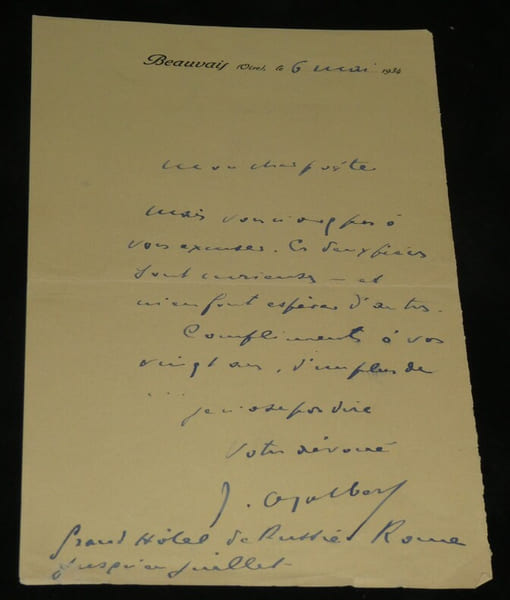 Beauvais (Oise), le 6 mai 1934
Mon cher poète
Mais vous n'avez pas à
vous excuser. Ces deux pièces
sont curieuses — et
m'en font espérer d'autres.
Compliments à vos
vingt ans, d'un plus de
... je n'ose pas dire
Votre dévoué
J. Ajalbert
Grand Hôtel de Russie Rome
jusqu'en juillet